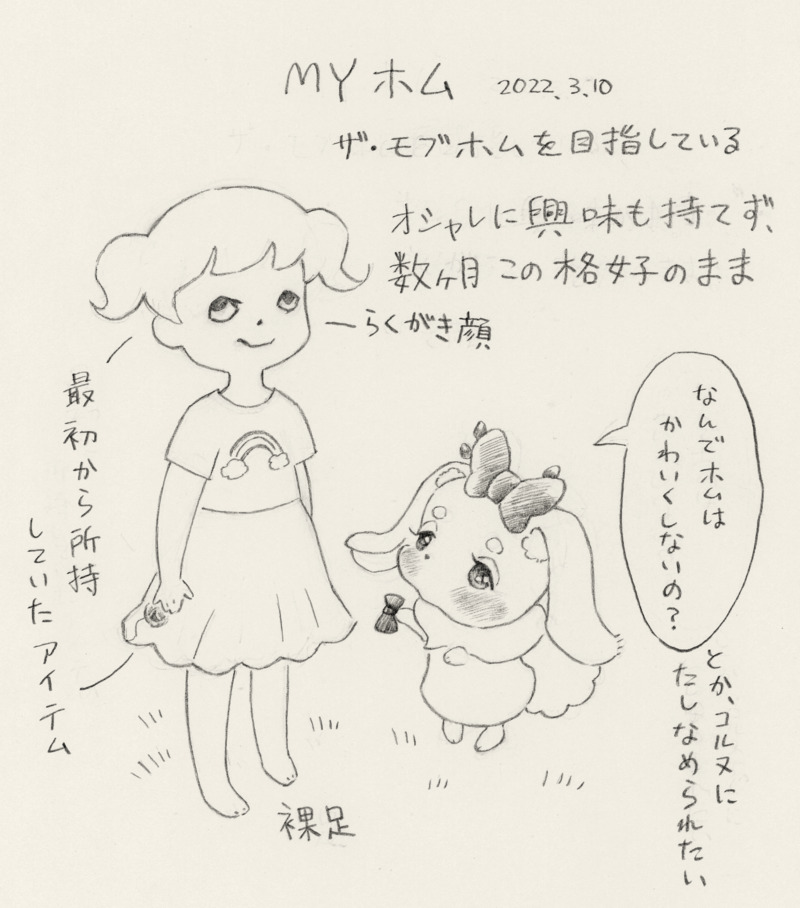 MYホム 2022.3.10
ザ・モブホムを目指している
オシャレに興味も持てず、
数ヶ月この格好のまま
らくがき顔
最初から所持
していたアイテム
なんでホムは
かわいくしないの?
とか、コルヌに
たしなめられたい
裸足